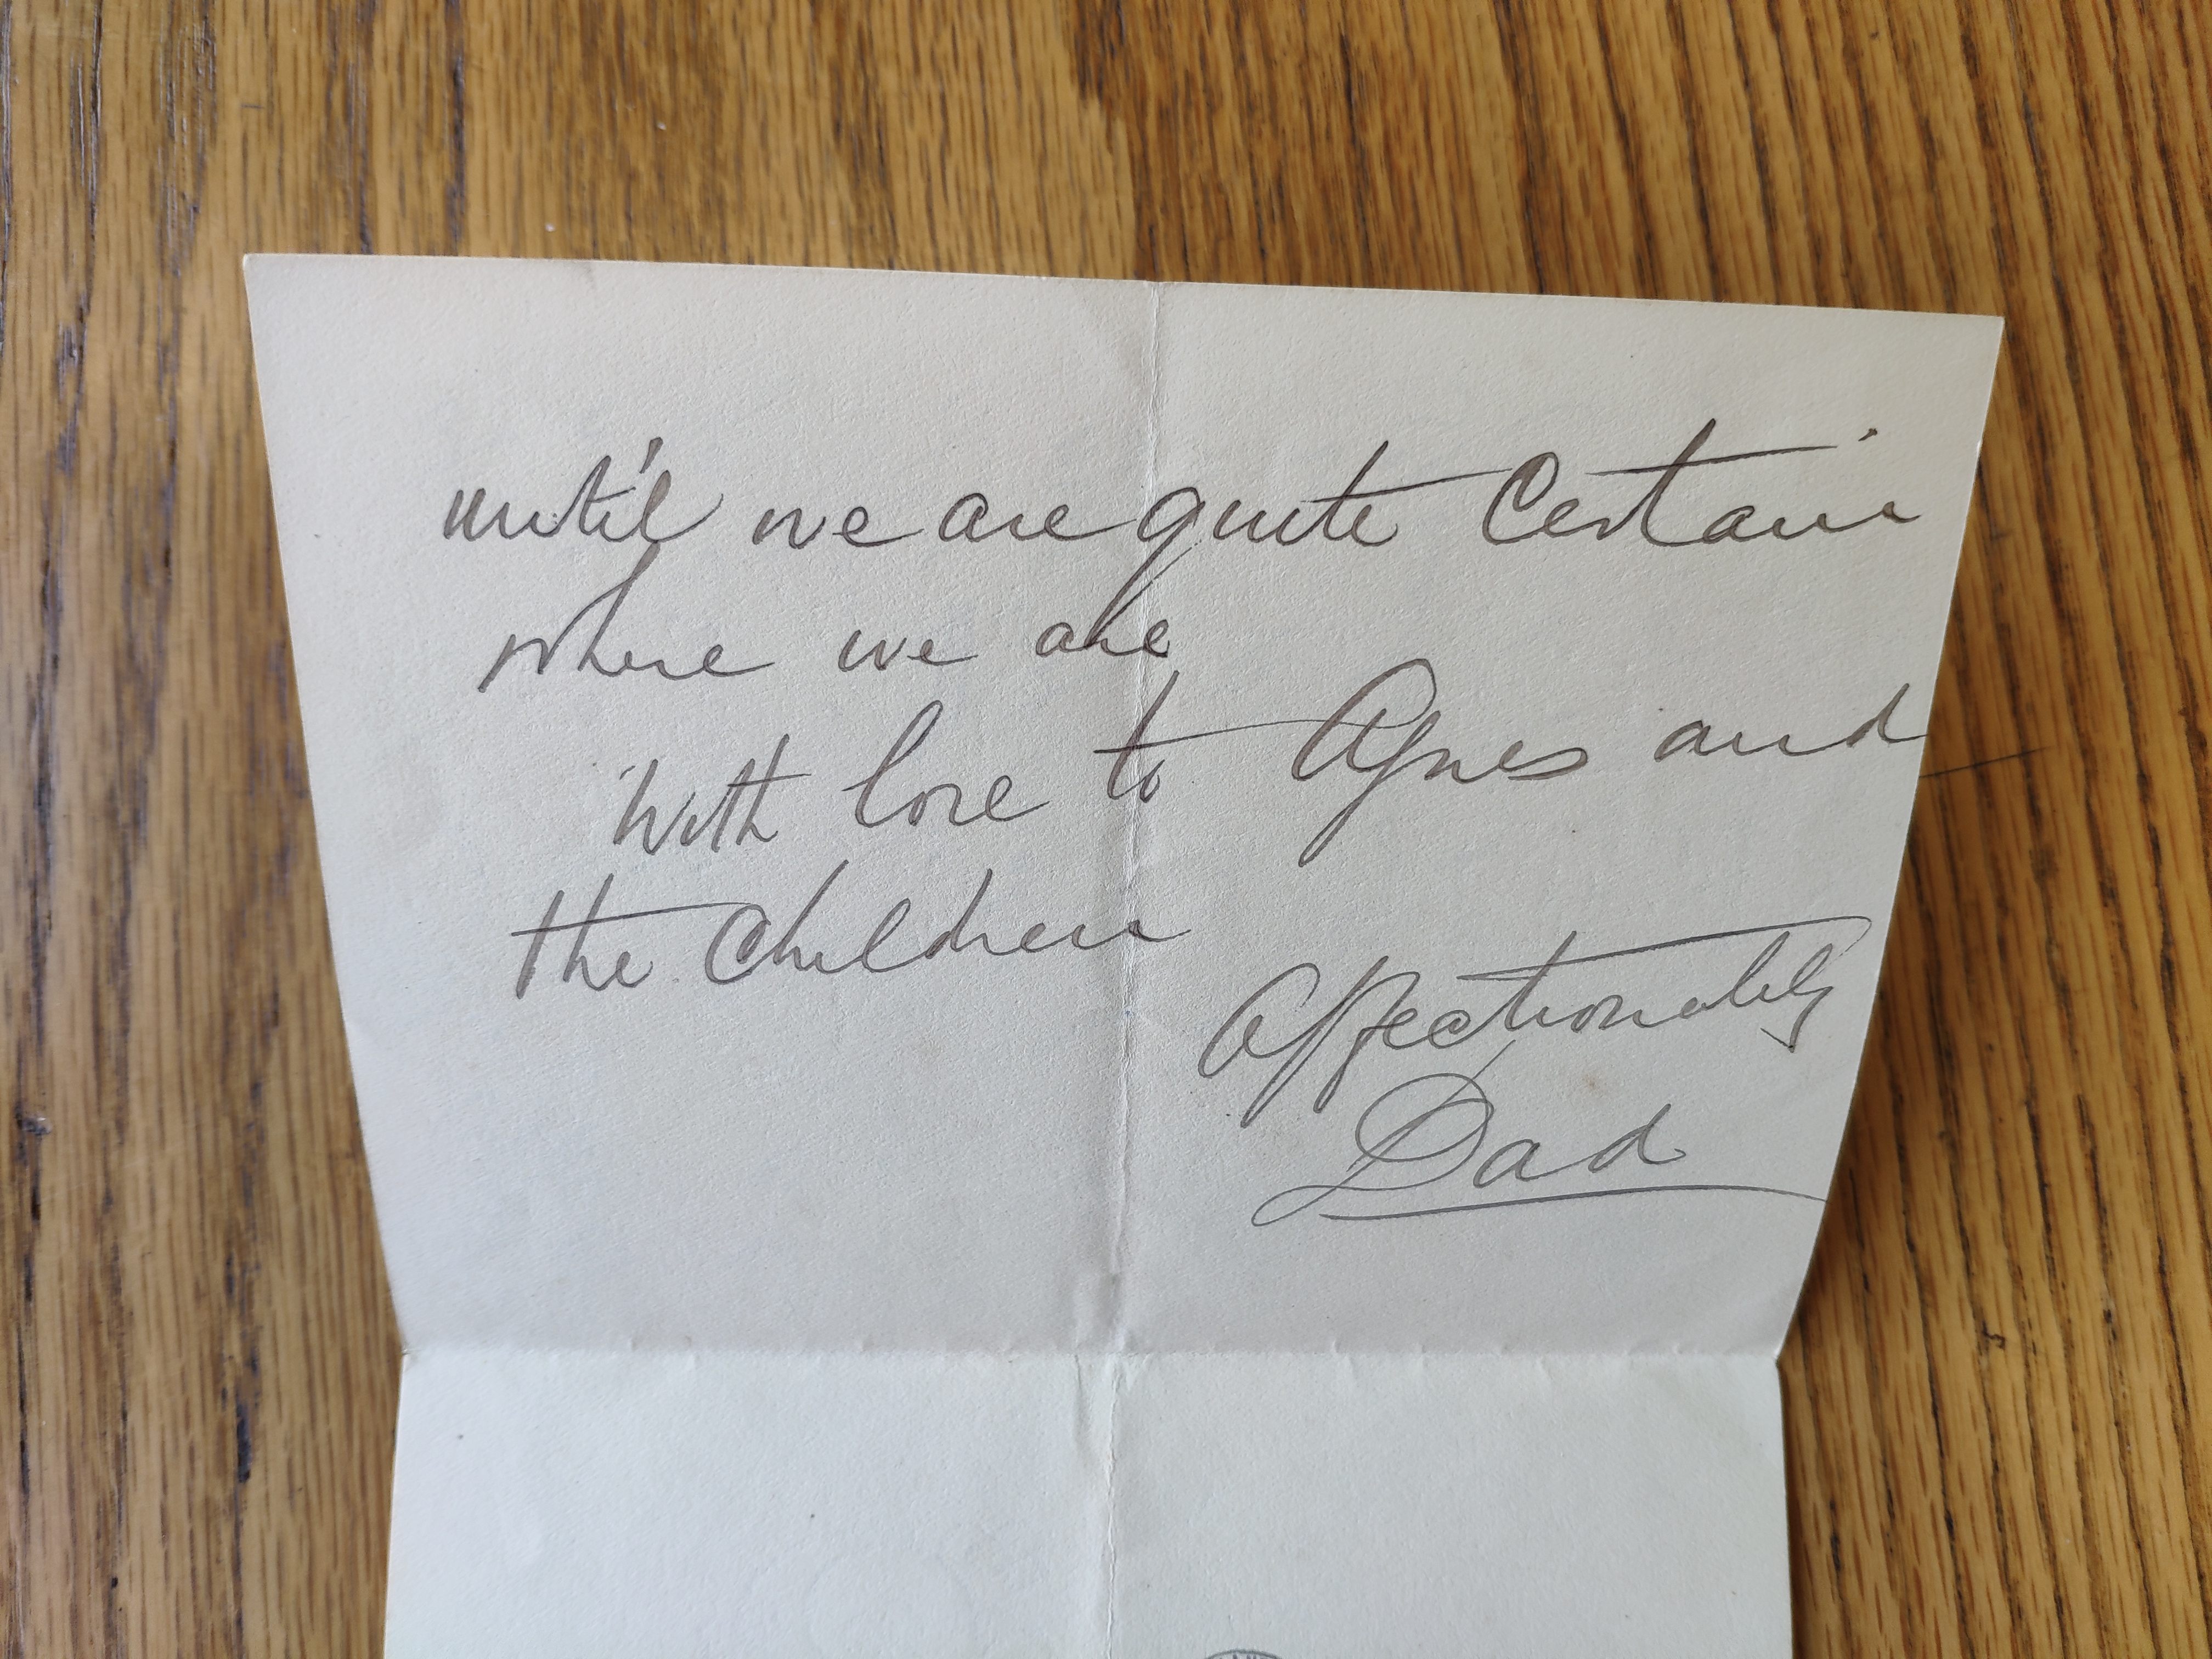 until we are quite Certain
where we are
With love to Agnes and
the Children
Affectionately
Dad